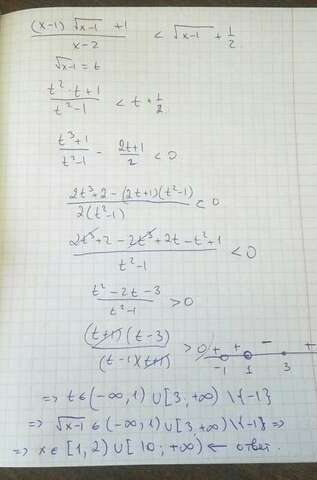 ((x-1)√(x-1) + 1)/(x-2) < √(x-1) + 1/2
√(x-1) = t
(t²·t+1)/(t²-1) < t + 1/2
(t³+1)/(t²-1) - (2t+1)/2 < 0
(2t³+2-(2t+1)(t²-1))/(2(t²-1)) < 0
(2t³+2-2t³+2t-t²+1)/(t²-1) < 0
(t²-2t-3)/(t²-1) > 0
((t+1)(t-3))/((t-1)(t+1)) > 0
+ + - +
-1 1 3
=> t∈(-∞,1)∪[3,+∞)\{-1}
=> √(x-1)∈(-∞,1)∪[3,+∞)\{-1} =>
=> x∈[1,2)∪[10;+∞) ← ответ.